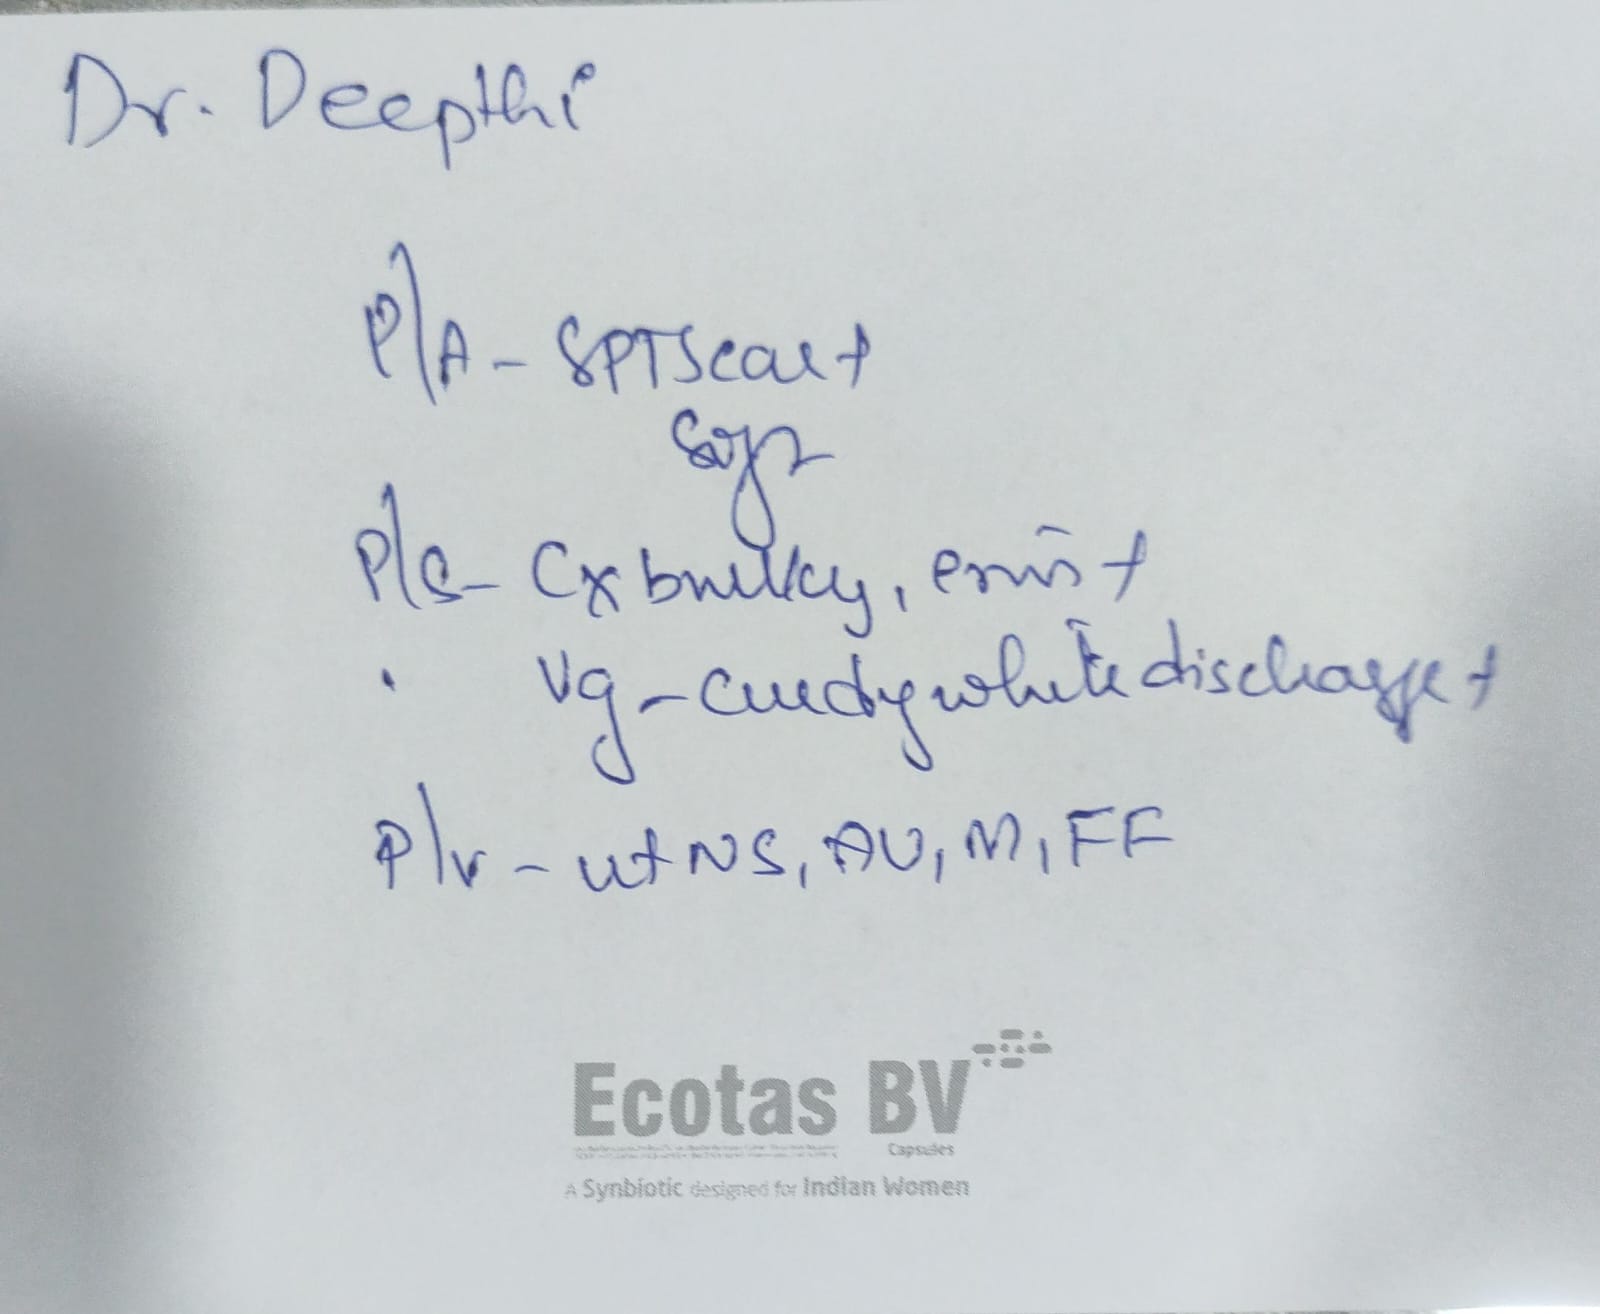 Dr. Deepthi
P/A - SPT Scar +
Soft
P/S - Cx bulky, +
Vg - curdy white discharge +
P/v - ut NS, AV, M, FF
Ecotas BV
Capsules
A Synbiotic designed for Indian Women